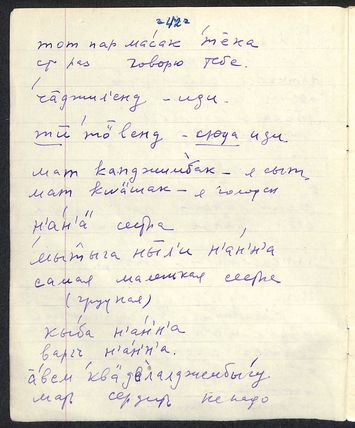 -42-
тот пар ма́сак те́ка
ст раз говорю тебе.
ча́джил'енд – иди.
тӣ тӧ́венд – сюда иди.
мат канджимбак – я сыт.
мат квашак – я голоден
н'а́н'ӓ сестра
мы́тыга ны́л'и н'а́н'н'а
самая маленькая сестра
(грудная)
кы́ба н'а́н'н'а
варг н'а́н'н'а.
а́вем ква
мат сердит не надо